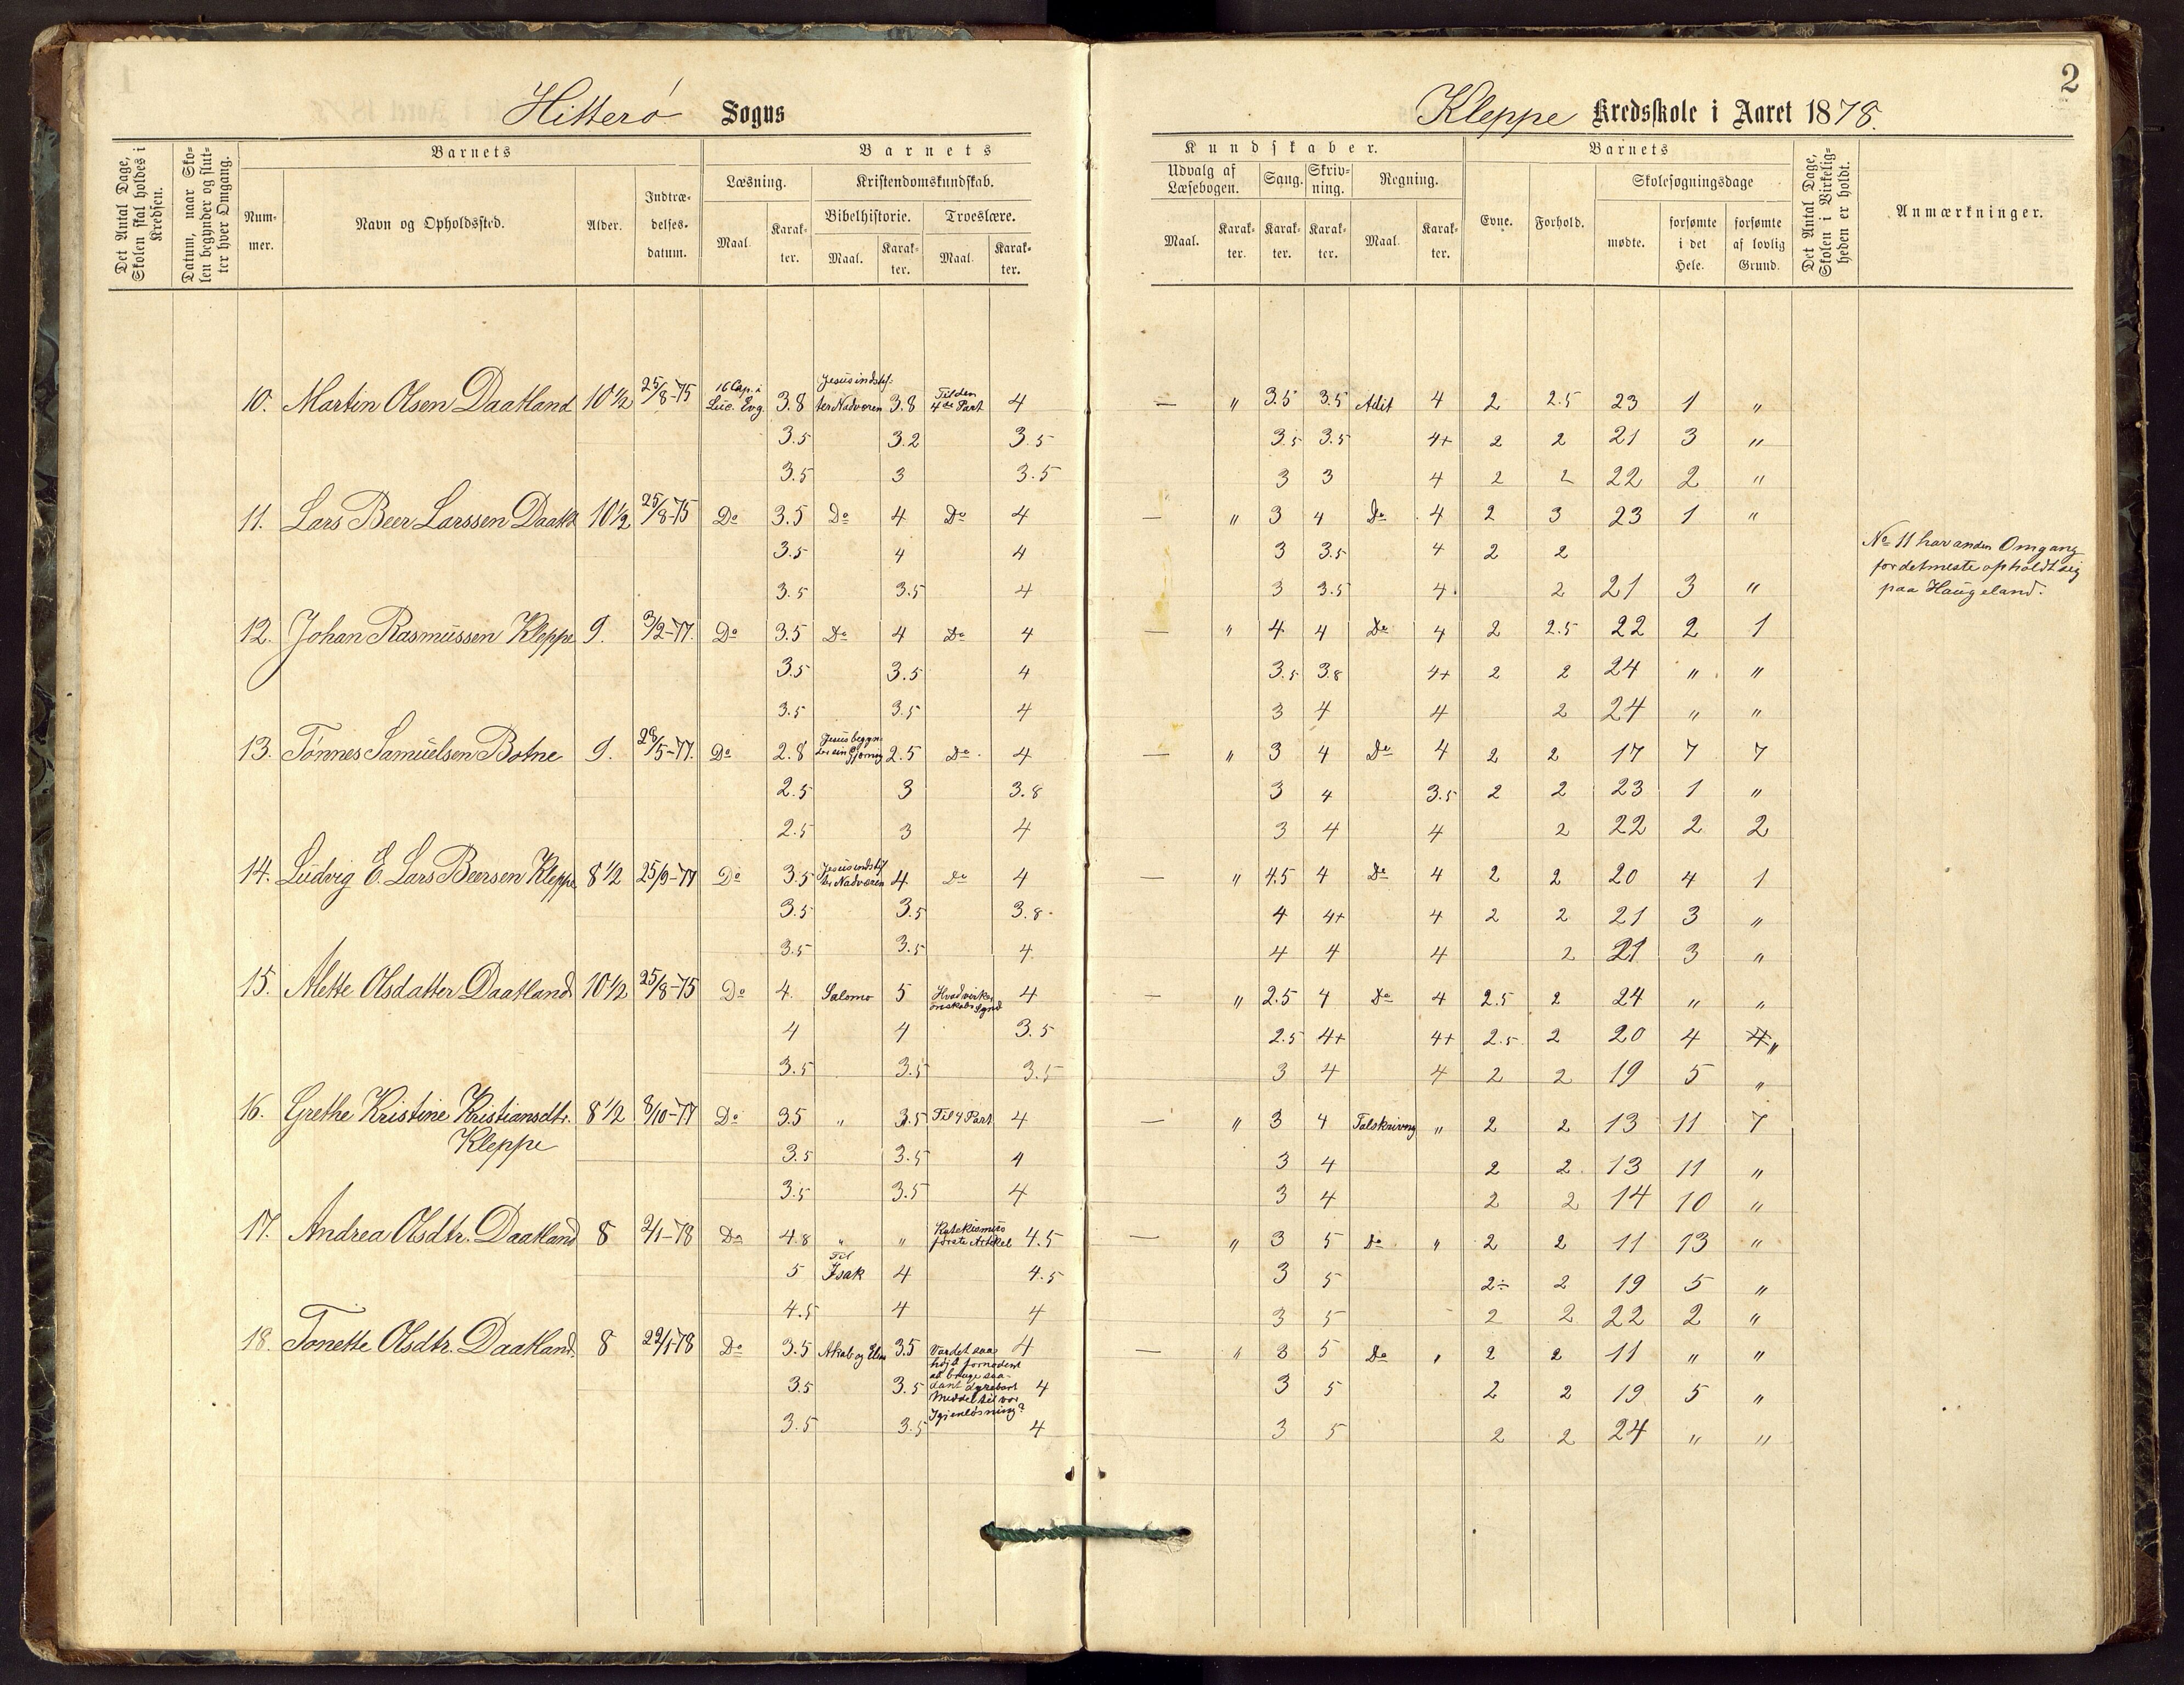 1
2
Hitterö Sogns
Kleppe Kredsskole i Aaret 1878.
Det Antal Dage, Skolen skal holdes i Kredsen.
Datum, naar Skolen begynder og slutter hver Omgang.
Barnets
Nummer.
Navn og Opholdssted.
Alder.
Indtrædelses-datum.
Barnets
Kundskaber.
Læsning.
Maal.
Karakter.
Kristendomskundskab.
Bibelhistorie.
Maal.
Karakter.
Troeslære.
Maal.
Karakter.
Udvalg af Læsebogen.
Maal.
Karakter.
Sang.
Karakter.
Skrivning.
Karakter.
Regning.
Maal.
Karakter.
Barnets
Evne.
Forhold.
Skolesøgningsdage
mødte.
forsømte i det Hele.
forsømte af lovlig Grund.
Det Antal Dage, Skolen i Virkeligheden er holdt.
Anmærkninger.
10. Martin Olsen Daatland 10 1/2 25/8-75 16 Cap. i Luc. Evg. 3.8 Jesus indstifter Nadveren 3.8 Til den 4de Part 4 — " 3.5 3.5 Adit 4 2 2.5 23 1 "
3.5 3.2 3.5 3.5 3.5 4+ 2 2 21 3 "
3.5 3 3.5 3 3 4 2 2 22 2 "
11. Lars Beer Larssen Daatl 10 1/2 25/8-75 Do 3.5 Do 4 Do 4 — " 3 4 Do 4 2 3 23 1 "
3.5 4 4 3 3.5 4 2 2
No 11 har anden Omgang
for det meste opholdt sig
paa Haugeland.
3.5 3.5 4 3 3.5 4. 2 21 3 "
12. Johan Rasmussen Kleppe 9. 3/2-77. Do 3.5 Do 4 Do 4 — " 4 4 Do 4 2 2.5 22 2 1
3.5 3.5 4 3.5 3.8 4+ 2 2 24 " "
3.5 3.5 4 3 4 4 2 24 " "
13. Tönnes Samuelsen Botne 9. 28/5-77. Do 2.8 Jesus begynder sin Gjerning 2.5 Do 4 — " 3 4 Do 4 2 2 17 7 7
2.5 3 3.8 3 4 3.5 2 2 23 1 "
2.5 3 4 3 4 4 2 22 2 2
14. Ludvig E. Lars Beersen Kleppe 8 1/2 25/9-77 Do 3.5 Jesus indstifter Nadveren 4 Do 4 — " 4.5 4 Do 4 2 2 20 4 1
3.5 3.5 3.8 4 4+ 4 2 2 21 3 "
3.5 3.5 4 4 4 4 2 21 3 "
15. Alette Olsdatter Daatland 10 1/2 25/8-75 Do 4. Salomo 5 Hvad virker 4 — " 2.5 4 Do 4 2.5 2 24 " "
4 4 3.5 2.5 4+ 4+ 2.5 2 20 4 "
3.5 3.5 3.5 3 4 4 2 2 19 5 "
16. Grethe Kristine Kristiansdtr. 8 1/2 8/10-77 Do 3.5 " 3.5 Til 4 Part 4 — " 3 4 Talskrivng " 2 2 13 11 7
Kleppe
3.5 3.5 4 3 4 2 2 13 11 "
3.5 3.5 4 3 4 2 2 14 10 "
17. Andrea Olsdtr. Daatland 8 2/1-78 Do 4.8 " " Katekismus förste Artikel 4.5 — " 3 5 Do " 2 2 11 13 "
5 Til Isak 4 4.5 3 5 2÷ 2 19 5 "
4.5 4 4 3 5 2 2 22 2 "
18. Tonette Olsdtr. Daatland. 8 22/1-78 Do 3.5 Akab og Elias 3.5 Var det saa höjt fornödent at bruge saadant dyrebart Middel til vor Igjenlösning? 4 — " 3 5 Do " 2 2 11 " "
3.5 3.5 4 3 5 2 2 19 5 "
3.5 3.5 4 3 5 2 2 24 " "